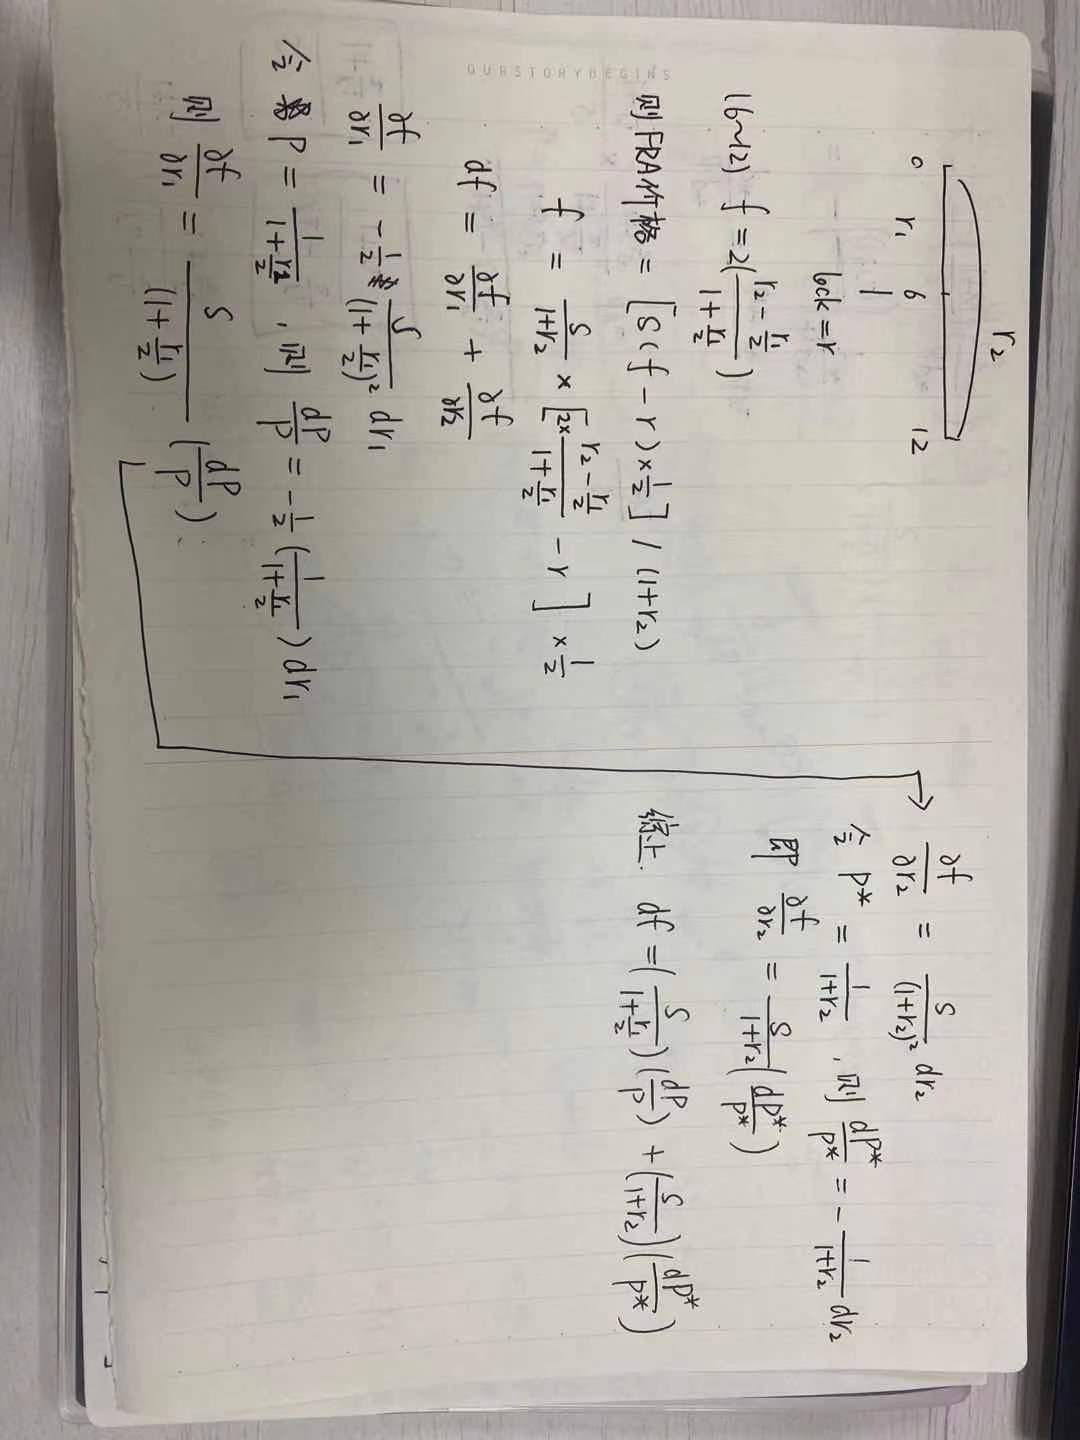 OURSTORYBEGINS
r₂
0 r₁ 6 12
lock = r
(6~12) f = 2(\frac{r₂ - \frac{r₁}{2}}{1 + \frac{r₁}{2}})
则 FRA价格 = [S(f - r) × \frac{1}{2}] / (1+r₂)
f = \frac{S}{1+r₂} × [2× \frac{r₂ - \frac{r₁}{2}}{1 + \frac{r₁}{2}} - r] × \frac{1}{2}
df = \frac{∂f}{∂r₁} + \frac{∂f}{∂r₂}
\frac{∂f}{∂r₁} = -\frac{1}{2} \frac{S}{(1 + \frac{r₁}{2})²} dr₁
令 P = \frac{1}{1 + \frac{r₁}{2}} , 则 \frac{dP}{P} = -\frac{1}{2} (\frac{1}{1 + \frac{r₁}{2}}) dr₁
则 \frac{∂f}{∂r₁} = \frac{S}{(1 + \frac{r₁}{2})} (\frac{dP}{P})
\frac{∂f}{∂r₂} = \frac{S}{(1+r₂)²} dr₂
令 P* = \frac{1}{1+r₂} , 则 \frac{dP*}{P*} = -\frac{1}{1+r₂} dr₂
即 \frac{∂f}{∂r₂} = \frac{S}{1+r₂} (\frac{dP*}{P*})
综上 df = (\frac{S}{1 + \frac{r₁}{2}}) (\frac{dP}{P}) + (\frac{S}{1+r₂}) (\frac{dP*}{P*})